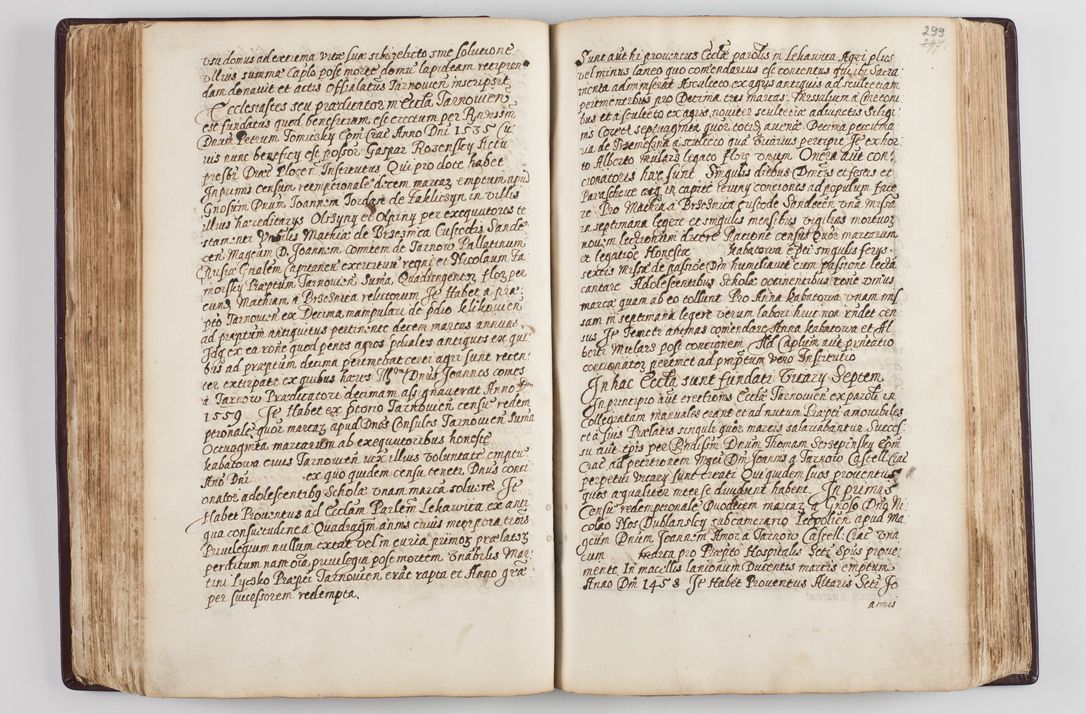 usu domus ad extrema vitæ suæ sibi relicto sine solutione
ullius summæ Caplo post morte domu lapideam recipien
dam donavit et actis offialatus Tarnovien inscripsit
Ecclesiastes seu prædicator in Eccla Tarnovien
est fundatus quod beneficium est erectum per Rndissm
Dnum Petrum Tomitzky Epm Crac Anno Dni 1535 Cu
ius nunc beneficy est possor Gaspar Rozensky Actu
presbr Diæc Plocen Institutus Qui pro dote habet
In primis censum reemptionale decem marcaz emptum apud
Gnosum Dnum Joannem Jordan de Zakliczyn in villis
illius hæreditarys Olszyny et Olpiny per exequutores te
stamenti Vnblis Mathiæ de Brzeznica Custodis Sande
cen Magcum D. Joannem Comitem de Tarnow Pallatinum
Russiæ Gnalem Capitaneu exercituu regni et Nicolaum Ja
moisky Præptum Tarnovien Suma Quadringentor flor per
eund Mathiam a Brzeznica relictorum It Habet a præ
pto Tarnovien ex Decima manipulari de prdio Klikovien
ad præptum antiquitus pertinente decem marcas annuas
Idq ex ea rone quod penes agros prdiales antiquos ex qui
bus ad præptum decima pertinebat certi agri sunt recen
ter extirpati ex quibus hæres Mgcus Dnus Joannes comes
a Tarnow Prædicatori decimam assignaverat Anno Dni
1559 It Habet ex prtorio Tarnovien censu redem
ptionale quor marcaz apud Dnos Consules Tarnovien Suma
Octuaginta marcarum ab exequutoribus honestæ
Kabatowa civis Tarnovien iux illius voluntate emptu
Ano Dni ex quo quidem censu tenetr Dnus conti
onator adolescentibq Scholæ unam marca solvere It
Habet Proventus ad Ecclam Parlem Lekawica ex anti
qua consuetudine a Quadragin annis cuius incorporationis
Privilegium nullum extat vel in curia primor prælatoz
perditum nam oia privilegia post mortem Vnabilis Mar
tini Lyczko Præpti Tarnovien erat rapta et Anno græ
per successorem redempta.
299
Sunt aut hi proventus Ecclæ parolis in Lekawica Agri plus
vel minus laneo quo comendarius est contentus qui ibi Sacra
menta administrat A sculteto ex agris antiquis ad scultetiam
pertinentibus pro Decima tres marcas. Missalium a Cmetoni
bus et a sculteto ex agris noviter scultetiæ adiunctis Siligi
nis Coret septuaginta quor totid avenæ Decima pecunia
ria de Trzemesna a sculteto qua vicarius percipit It ex hor
to Alberto Mulars legato flor unum Onera aut con
cionatoris hæc sunt Singulis diebus Dnicis et festis et
Parasceue etiq in capite ieiuny conciones ad populum face
re Pro Mathia a Brzesnica Custode Sandecen una missa
in septimana legere et singulis mensibus vigilias mortuoz
novem lectionum dicere Ratione census quor marcarum
ex legatioe Honestæ Kabatowa epti singulis ferys
sextis Missa de passioe Dni humiliavit cum passione lecta
cantare Adolescentibus Scholæ occinentibus rone unius
marcæ quam ab eo tollant Pro Anna Kabatowa unam mis
sam in septimana legere verum labori huic non rndet cen
sus It Tenetr animas comendare Anna Kabatowa et Al
berti Mulars post contionem Ad Caplum aut prntatio
contionator pertinet ad præptum vero Institutio
In hac Eccla sunt fundati Vicary Septem
In principio aut erectionis Ecclæ Tarnovien ex paroli in
Collegiatam manuales erant et ad nutum Præpti amovibiles
et a suis Prælatis singuli quor marcis salariabantur Succes
su aut tpis per Rndissm Dnum Thomam Strzepinsky Epm
Crac ad petitionem Mgci Dni Joannis a Tarnow Castell Crac
perpetui Vicary sunt creati Qui quidem suos proventus
quos æqualiter inter se dividunt habent. In primis
Censu redemptionale Duodecim marcaz a Gnoso Dno Ni
colao Plos Dublansky subcamerario Leopolien apud Ma
gcum Dnum Joannem Amor a Tarnow Castell: Crac una
cum media pro Præpto Hospitalis Scti Spiis prove
niente. In macellis lanionum Ducentis marcis emptum
Anno Dni 1458 It Habet Proventus Altaris Scti Jo
annis